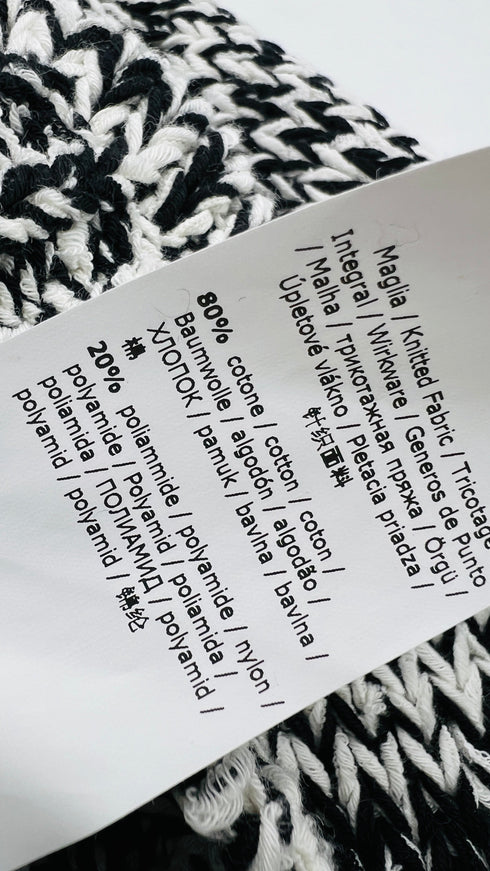 Maglia / Knitted Fabric / Tricotage
Integral / Wirkware / Generos de Punto
/ Malha / трикотажная пряжа / Örgü /
Úpletové vlákno / Pletacia priadza /
针织面料
80% cotone / cotton / coton /
Baumwolle / algodón / algodão /
ХЛОПОК / pamuk / bavlna / bavlna /
棉
20% poliammide / polyamide / nylon /
polyamide / Polyamid / poliamida /
poliamida / ПОЛИАМИД / polyamid /
polyamid / polyamid / 锦纶